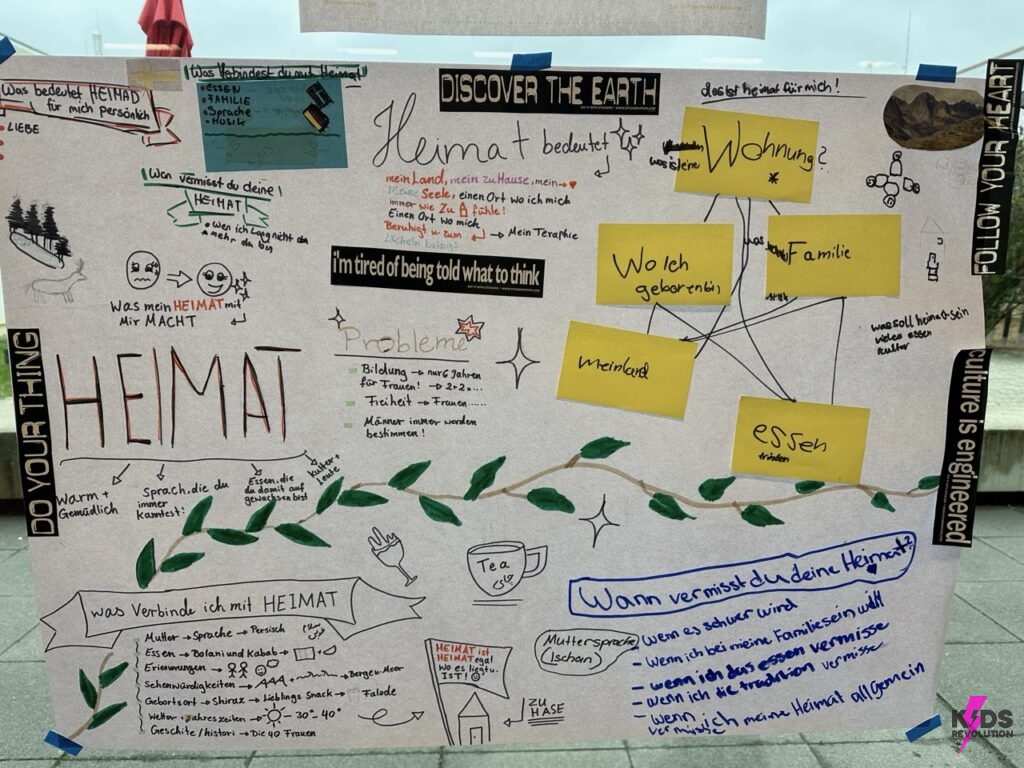 Was bedeutet HEIMAD
für mich persönlich
LIEBE
Was Verbindest du mit Heimat
ESSEN
FAMILIE
Sprache
MUSIK
Wan vermisst du deine
HEIMAT
Wen ich Lang nicht da
mehr da bin
Was mein HEIMAT mit
Mir MACHT
DISCOVER THE EARTH
Heimat bedeutet
mein Land, mein zuHause, mein → ♥
Meine Seele, einen Ort wo ich mich
immer wie Zu fühle!
Einen Ort wo mich
Beruhigt u. zum → Mein Teraphie
Lächeln bringt
i'm tired of being told what to think
das ist heimat für mich!
was ist eine Wohnung?
Wo Ich
geboren bin
was Familie
mein land
essen
trinken
was soll heimat sein
vieles essen
kultur
FOLLOW YOUR HEART
culture is engineered
DO YOUR THING
Probleme
Bildung → nur 6 Jahren
für Frauen! → 2+2=...
Freiheit → Frauen......
Männer immer worden
bestimmen!
HEIMAT
Warm +
Gemüdlich
Sprach, die du
immer
Kanntest!
Essen, die
du damit auf
gewachsen bist
Kulter +
Leute
Tea
چای
was Verbinde ich mit HEIMAT
Mutter → Sprache → Persisch
Essen → Bolani und Kabab →
Erienerungen →
Sehenwürdigkeiten → Berge u. Meer
Geburtsort → Shiraz → Lieblings Snack → Falode
Wetter + Jahreszeiten → 30°- 40°
Geschite/histori → Die 40 Frauen
HEIMAT ist
HEIMAT egal
Wo es liegt u.
IST!
ZU
HASE
Muttersprache
(Ischan)
Wann vermisst du deine Heimat?
Wenn es schwer wird
- Wenn ich bei meine Familie sein will
- wenn ich das essen vermisse
- wenn ich die tradition vermisse
- wenn ich meine Heimat allgemein
vermisse
KIDS
REVOLUTION